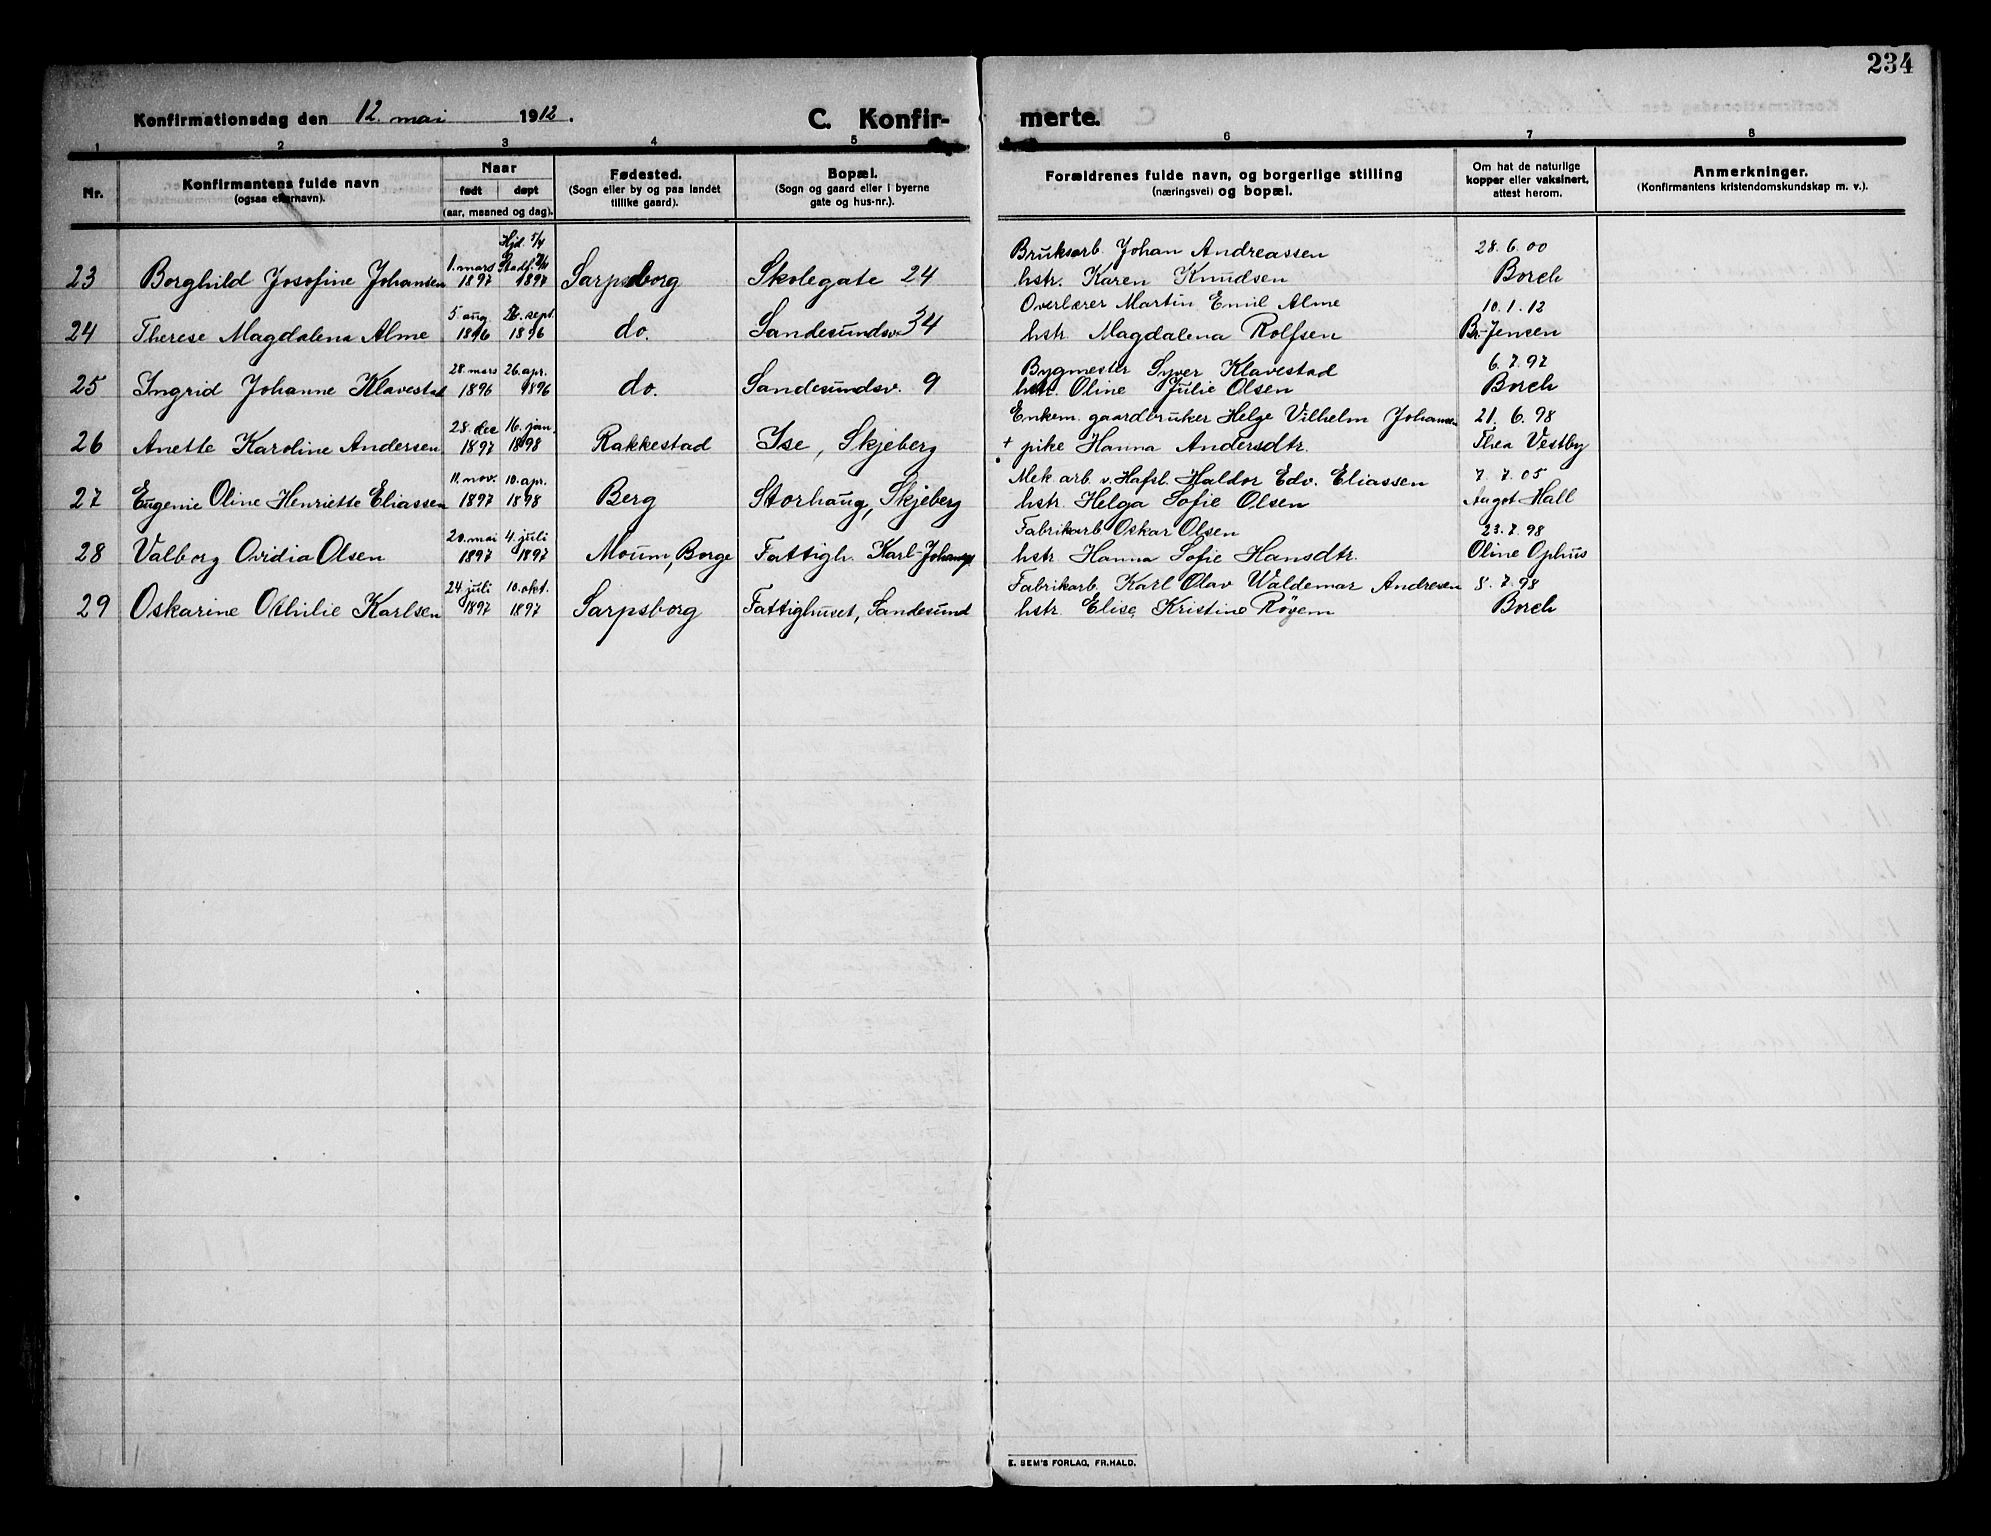 234
Konfirmationsdag den 12. mai 1912.
C. Konfir-
merte.
1 2 3 4 5 6 7 8
Nr.
Konfirmantens fulde navn
(ogsaa efternavn).
Naar
født døpt
(aar, maaned og dag).
Fødested.
(Sogn eller by og paa landet
tillike gaard).
Bopæl.
(Sogn og gaard eller i byerne
gate og hus-nr.).
Forældrenes fulde navn, og borgerlige stilling
(næringsvei) og bopæl.
Om hat de naturlige
kopper eller vaksinert,
attest herom.
Anmerkninger.
(Konfirmantens kristendomskundskap m. v.).
Hjd. 5/4
1. mars Stadf. Bruksarb. Johan Andreassen 28. 6. 00
23 Borghild Josofine Johansen 1897 1897 Sarpsborg Skolegate 24 hstr. Karen Knudsen Borch
5. aug sept. Overlærer Martin Emil Alme 10. 1. 12
24 Therese Magdalena Alme 1896 1896 do. Sandesundsv. 34 hstr. Magdalena Rolfsen Br. Jensen
28. mars 26. apr. Bygmester Syver Klavestad 6. 7. 97
25 Ingrid Johanne Klavestad 1896 1896 do. Sandesundsv. 9 hstr. Oline Julie Olsen Borch
28. dec 16. jan. Enkem. gaardbruker Helge Vilhelm Johansen 21. 6. 98
26 Anette Karoline Andersen 1897 1898 Rakkestad Ise, Skjeberg + pike Hanna Andersdtr. Thea Vestby
11. nov. 10. apr. Mek. arb. v. Hafsl. Haldor Edv. Eliassen 7. 7. 05
27 Eugenie Oline Henriette Eliassen 1897 1898 Berg Storhaug, Skjeberg hstr. Helga Sofie Olsen Aagot Hall
20. mai 4. juli Fabrikarb. Oskar Olsen 23. 7. 98
28 Valborg Ovidia Olsen 1897 1897 Moum, Borge Fattigh. Karl-Johansgt hstr. Hanna Sofie Hansdtr. Oline Ophus
24. juli 10. okt. Fabrikarb. Karl Olav Waldemar Andresen 8. 7. 98
29 Oskarine Othilie Karlsen 1897 1897 Sarpsborg Fattighuset, Sandesund hstr. Elise Kristine Røyem Borch
E. SEM'S FORLAG, FR.HALD.